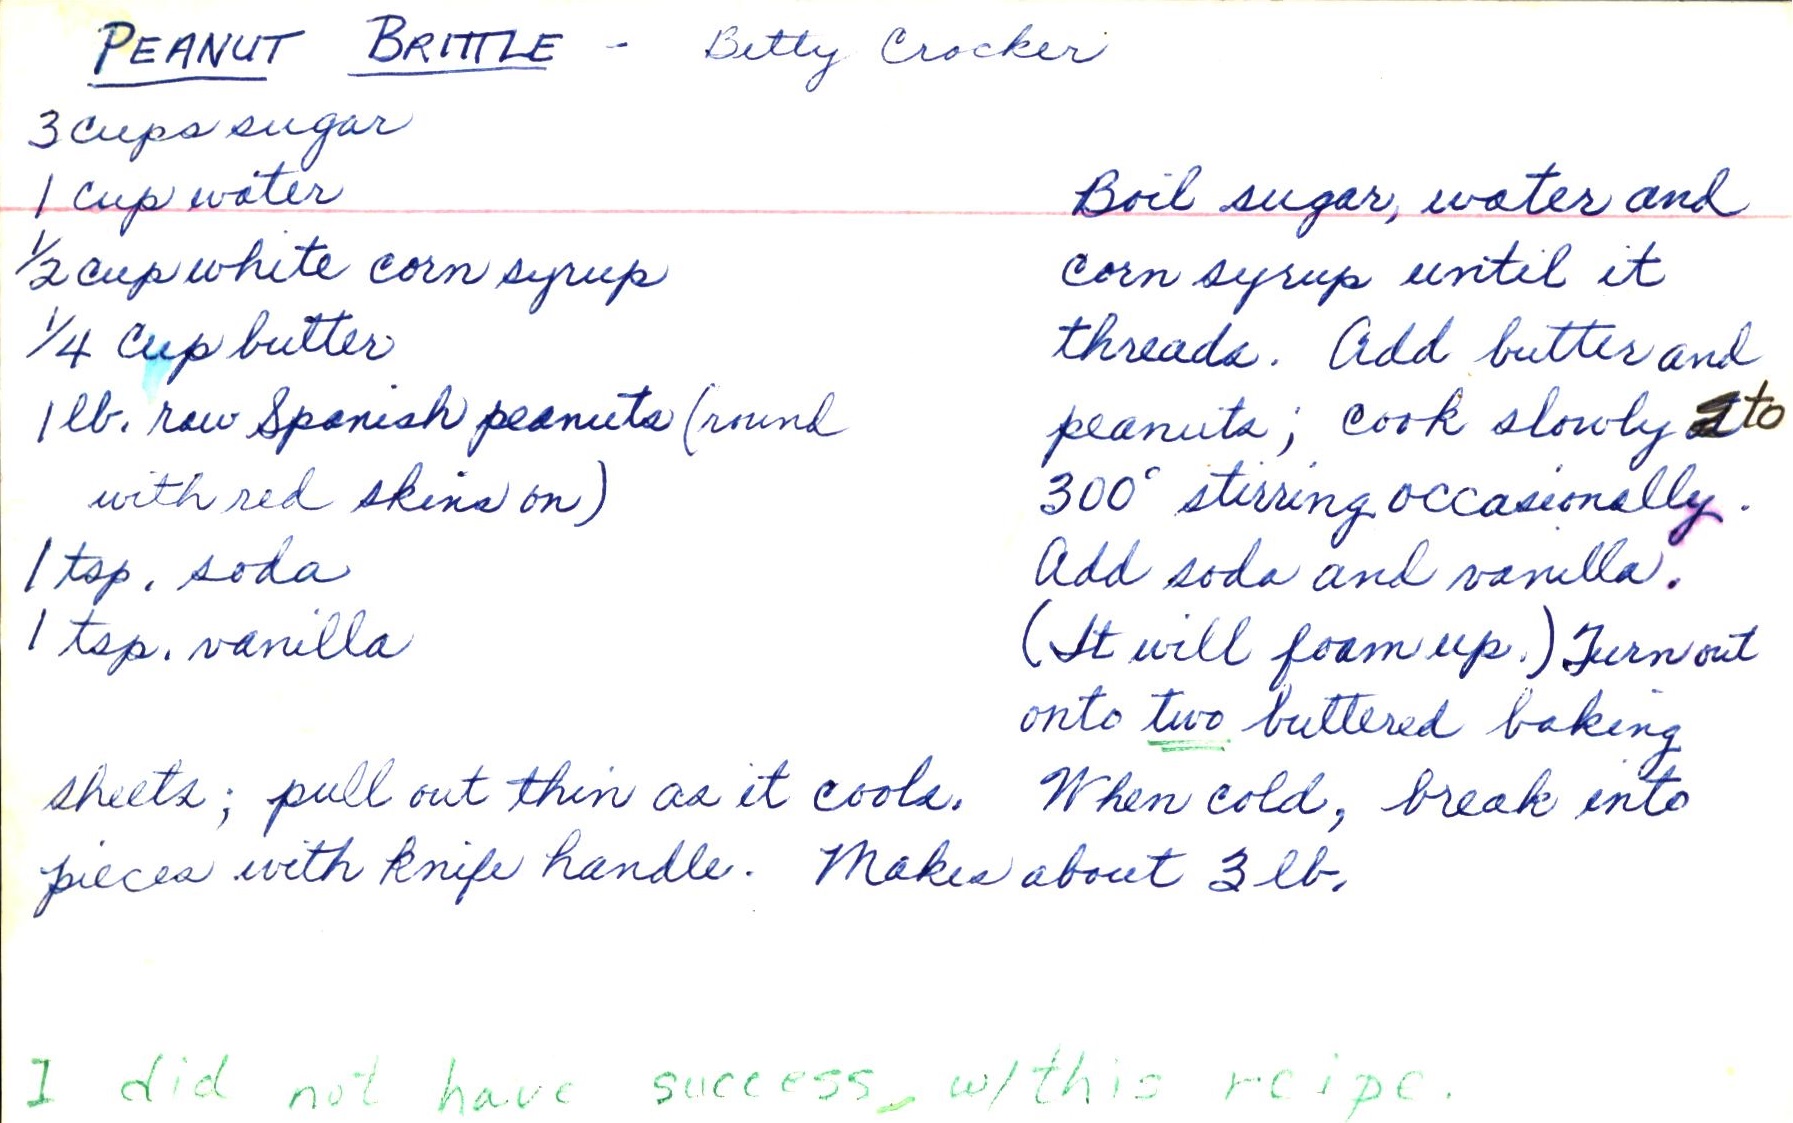 PEANUT BRITTLE - Betty Crocker
3 cups sugar
1 cup water
1/2 cup white corn syrup
1/4 cup butter
1 lb. raw Spanish peanuts (round
with red skins on)
1 tsp. soda
1 tsp. vanilla
Boil sugar, water and
corn syrup until it
threads. Add butter and
peanuts; cook slowly to
300° stirring occasionally.
Add soda and vanilla.
(It will foam up.) Turn out
onto two buttered baking
sheets; pull out thin as it cools. When cold, break into
pieces with knife handle. Makes about 3 lb.
I did not have success w/this rcipe.